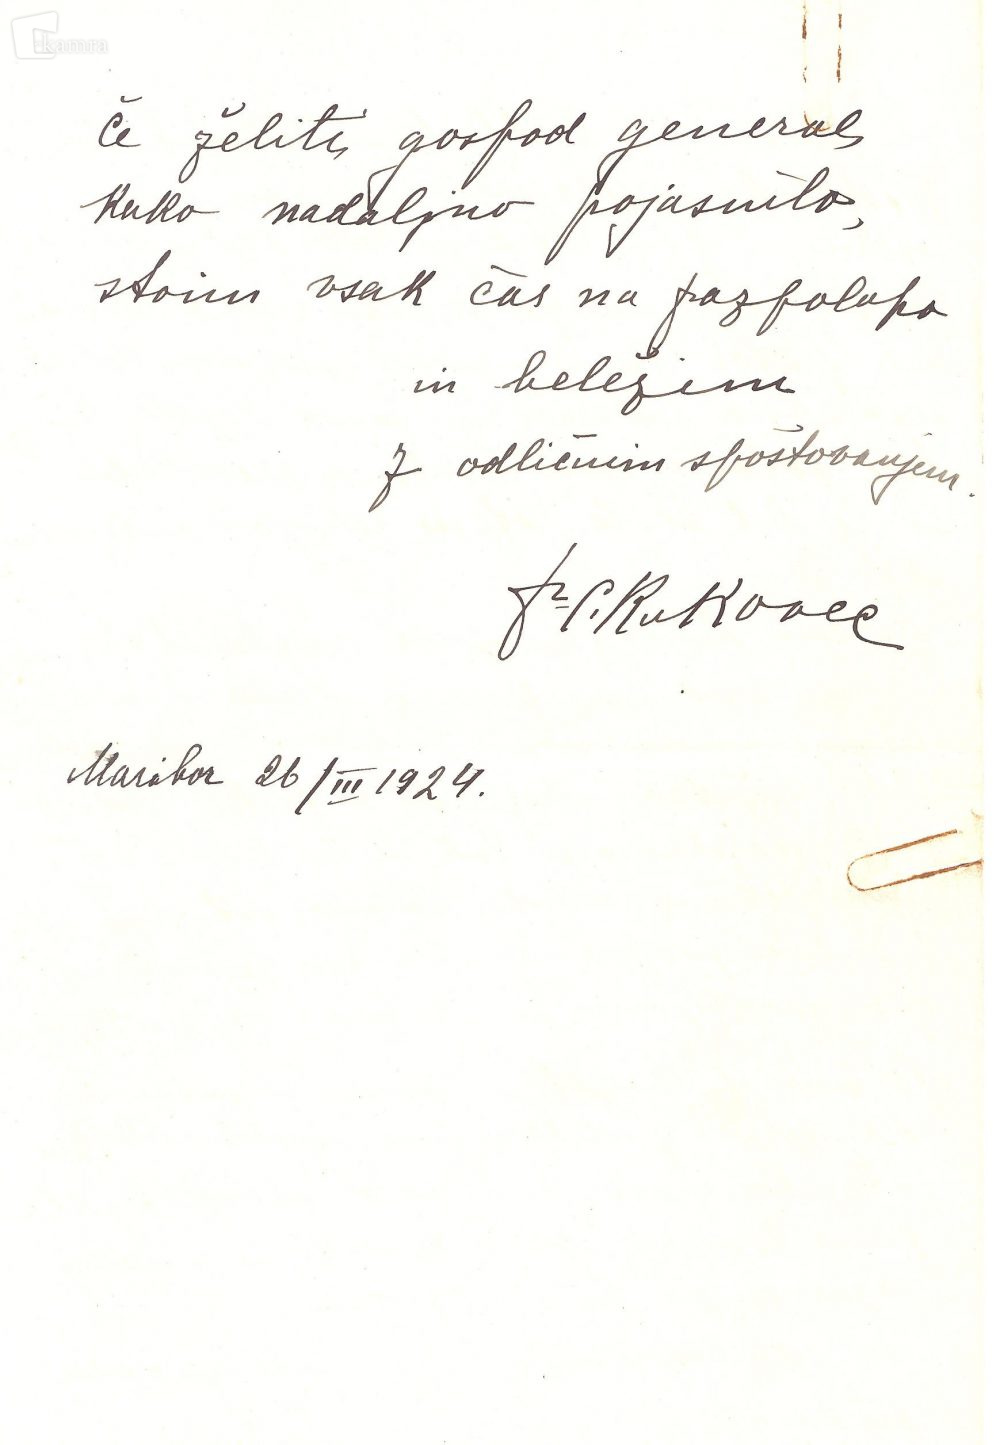 kamra
Če želite, gospod general,
kako nadaljno pojasnilo,
stoim vsak čas na razpolapo
in beležim
z odličnim spoštovanjem.
Rukovec
Maribor 26/III 1924.